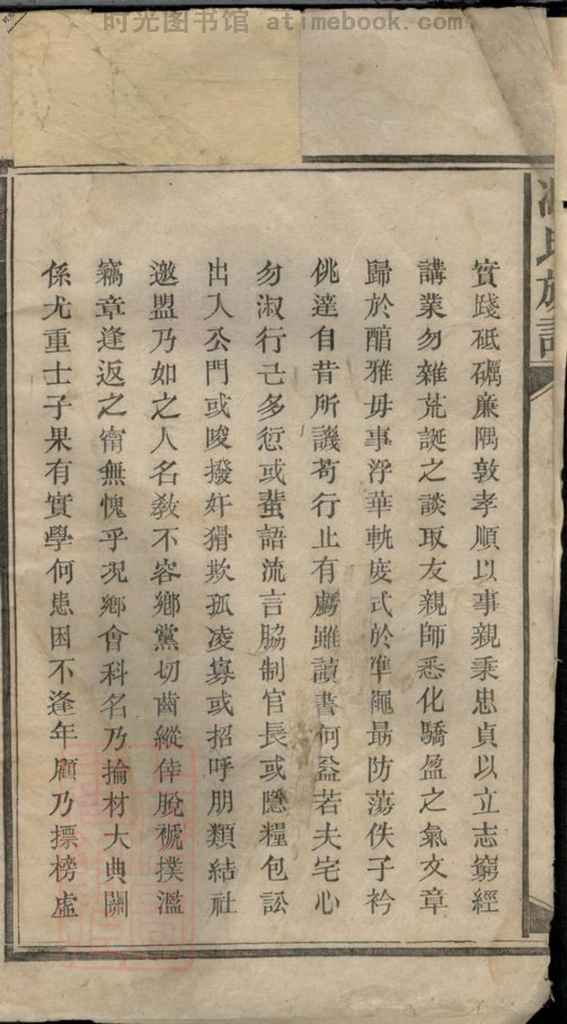 时光图书馆 atimebook.com
氏族譜
實踐砥礪廉隅敦孝順以事親秉忠貞以立志窮經
講業勿雜荒誕之談取友親師悉化驕盈之氣文章
歸於醇雅毋事浮華軌度式於準繩最防蕩佚子衿
佻達自昔所譏苟行止有虧雖讀書何益若夫宅心
勿淑行己多愆或蜚語流言脇制官長或隱糧包訟
出入公門或唆撥奸猾欺孤凌寡或招呼朋類結社
邀盟乃如之人名教不容鄉黨切齒縱倖脫褫撲濫
竊章逢返之衷無愧乎况鄉會科名乃掄材大典關
係尤重士子果有實學何患困不逢年顧乃摽榜虛